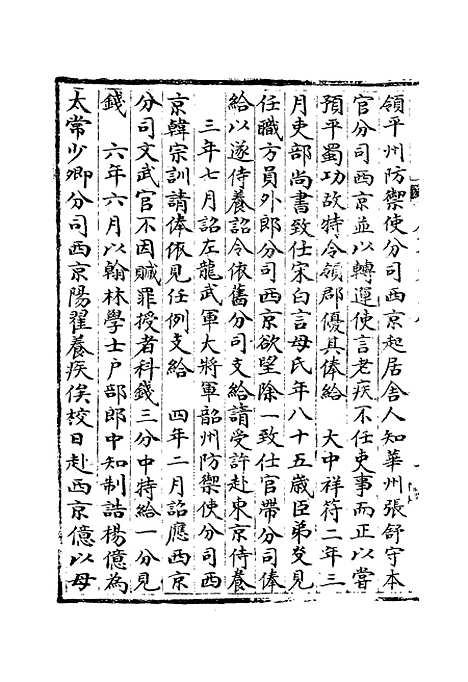 領平州防禦使分司西京起居舍人知華州張舒守本
官分司西京並以轉運使言老疾不任吏事而正以嘗
預平蜀功故特令領郡優其俸給　大中祥符二年三
月吏部尚書致仕宋白言母氏年八十五歲臣弟㸚見
任職方員外郎分司西京欲望除一致仕官帶分司俸
給以遂侍養詔令依舊分司支給請受許赴東京侍養
三年七月詔左龍武軍大將軍韶州防禦使分司西
京韓宗訓請俸依見任例支給　四年二月詔應西京
分司文武官不因贓罪授者科錢三分中特給一分見
錢　六年六月以翰林學士户部郎中知制誥楊億為
太常少卿分司西京陽翟養疾俟校日赴西京億以母